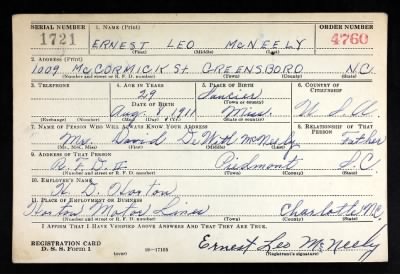 SERIAL NUMBER 1. NAME (Print) ORDER NUMBER
1721 ERNEST LEO McNEELY 4760
(First) (Middle) (Last)
2. ADDRESS (Print)
1009 McCORMICK St. GREENSBORO N.C.
(Number and street or R. F. D. number) (Town) (County) (State)
3. TELEPHONE 4. AGE IN YEARS 5. PLACE OF BIRTH 6. COUNTRY OF CITIZENSHIP
29
DATE OF BIRTH
Aug 8 1911 Miss. U.S.A.
(Exchange) (Number) (Mo.) (Day) (Yr.) (State or country)
7. NAME OF PERSON WHO WILL ALWAYS KNOW YOUR ADDRESS 8. RELATIONSHIP OF THAT PERSON
Mr. David DeWitt McNeely Father
(Mr., Mrs., Miss) (First) (Middle) (Last)
9. ADDRESS OF THAT PERSON
R.F.D. Piedmont S.C.
(Number and street or R. F. D. number) (Town) (County) (State)
10. EMPLOYER'S NAME
H. D. Horton
11. PLACE OF EMPLOYMENT OR BUSINESS
Horton Motor Lines Charlotte N.C.
(Number and street or R. F. D. number) (Town) (County) (State)
I AFFIRM THAT I HAVE VERIFIED ABOVE ANSWERS AND THAT THEY ARE TRUE.
REGISTRATION CARD
D. S. S. Form 1 (over) 16—17105 Ernest Leo McNeely
(Registrant's signature)